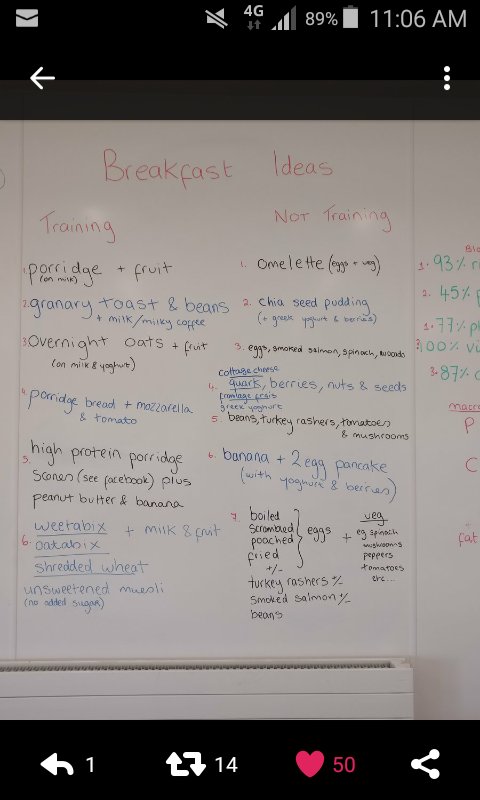 4G 89% 11:06 AM
Breakfast Ideas
Training
1. porridge + fruit
(on milk)
2. granary toast & beans
+ milk/milky coffee
3. Overnight oats + fruit
(on milk & yoghurt)
4. porridge bread + mozzarella
& tomato
5. high protein porridge
scones (see facebook) plus
peanut butter & banana
6. weetabix + milk & fruit
oatabix
shredded wheat
unsweetened muesli
(no added sugar)
Not Training
1. omelette (eggs + veg)
2. chia seed pudding
(+ greek yoghurt & berries)
3. eggs, smoked salmon, spinach,
cottage cheese
4. quark, berries, nuts & seeds
fromage frais
greek yoghurt
5. beans, turkey rashers, tomatoes
& mushrooms
6. banana + 2 egg pancake
(with yoghurt & berries)
7. boiled
scrambled
poached
fried
eggs
+
veg
eg spinach
mushrooms
peppers
tomatoes
etc...
+/-
turkey rashers +/-
smoked salmon +/-
beans
1. 93%
2. 45%
1. 77%
100%
3. 87%
macro
P
C
fat
1
14
50